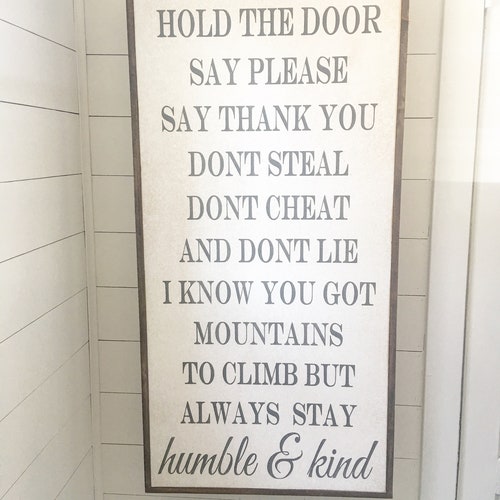 HOLD THE DOOR
SAY PLEASE
SAY THANK YOU
DONT STEAL
DONT CHEAT
AND DONT LIE
I KNOW YOU GOT
MOUNTAINS
TO CLIMB BUT
ALWAYS STAY
humble & kind